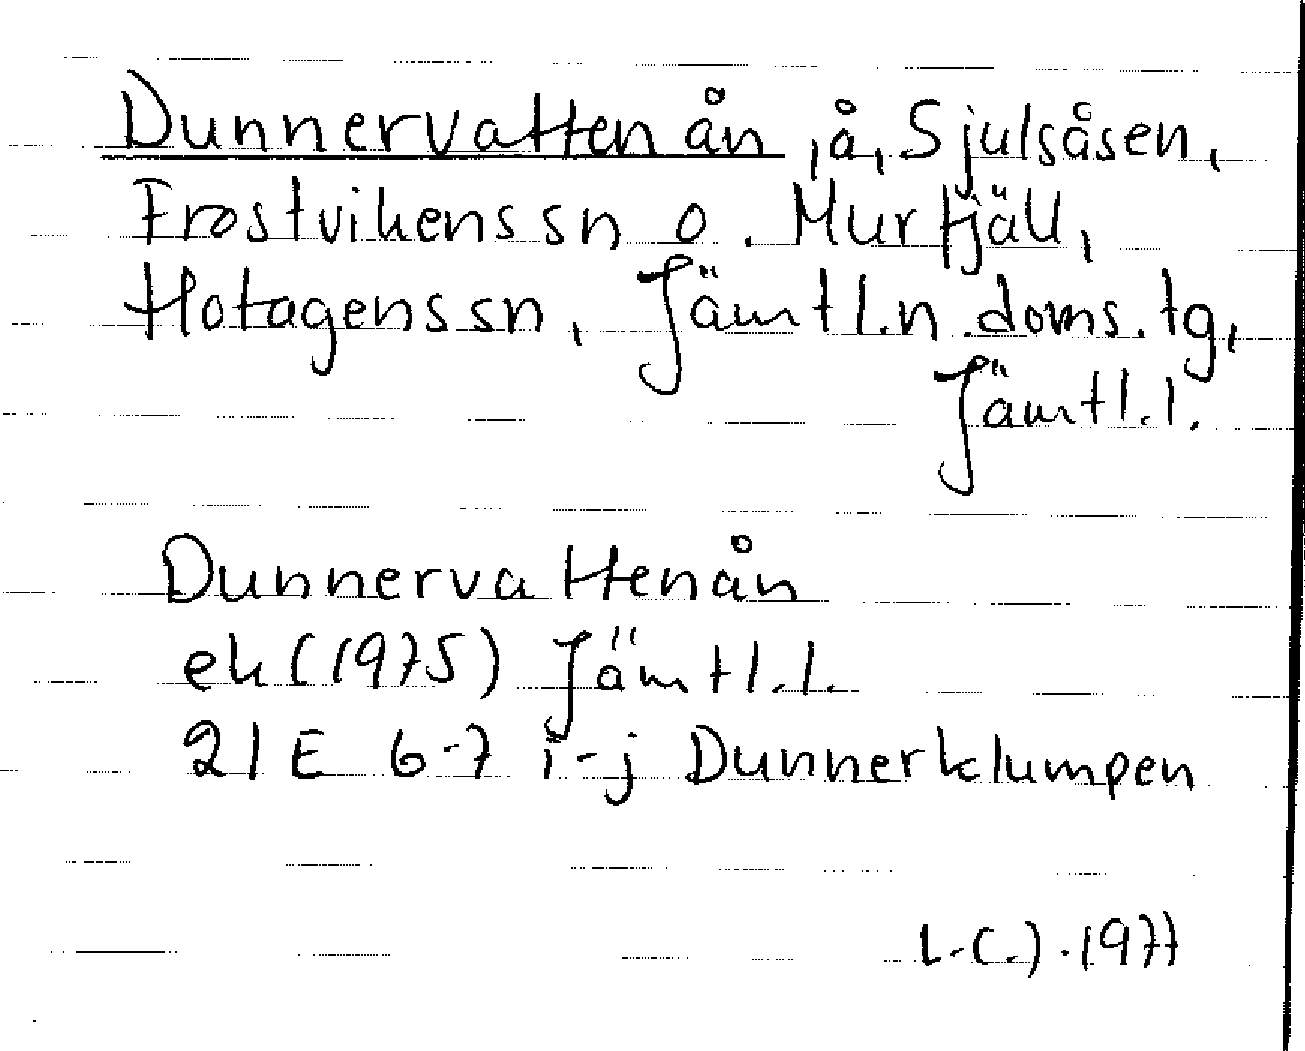 Dunnervattenån, å, Sjulsåsen,
Frostvikens sn o. Murfjäll,
Hotagens sn, Jämtl.n.doms.tg,
Jämtl.l.
Dunnervattenån
ek (1975) Jämtl.l.
21 E 6-7 i-j Dunnerklumpen
L.C.J. 1977